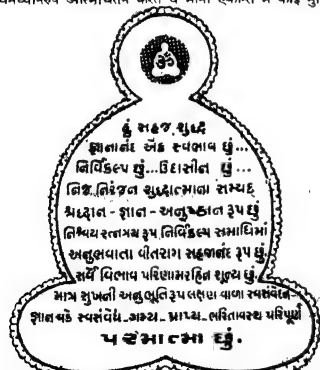 હું સહજ શુદ્ધ
જ્ઞાનાનંદ એક સ્વભાવ છું...
નિર્વિકલ્પ છું... ઉદાસીન છું...
નિજ નિરંજન શુદ્ધાત્માના સમ્યક્
શ્રદ્ધાન - જ્ઞાન - અનુષ્ઠાન રૂપ છું
નિશ્ચય રત્નત્રય રૂપ નિર્વિકલ્પ સમાધિમાં
અનુભવાતા વીતરાગ સહજાનંદ રૂપ છું.
સર્વ વિભાવ પરિણામરહિત શૂન્ય છું.
માત્ર સુખની અનુભૂતિરૂપ લક્ષણ વાળા સ્વસંવેદન-
જ્ઞાન વડે સ્વસંવેદ્ય-ગમ્ય - પ્રાપ્ય - ભરિતાવસ્થ પરિપૂર્ણ
પરમાત્મા છું.